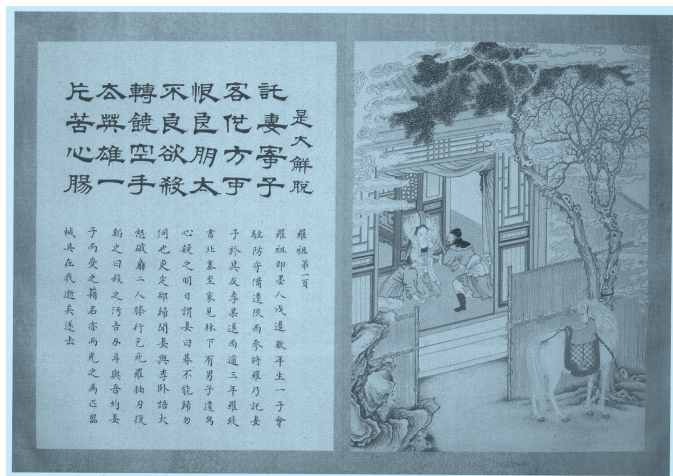 是大觧脫
託妻寄子
客他方可
恨良朋太
不良欲殺
轉饒空手
去英雄一
片苦心腸
羅祖第一頁
羅祖即墨人戍邊數年生一子會
駐防守備遷陝西參將羅乃託妻
子於其友李某遂西逾三年羅致
書北塞至家見牀下有男子遺舄
心疑之明日謂妻曰暮不能歸勿
伺也更定卻歸聞妻與李卧語大
怒破扉二人膝行乞死羅抽刀復
韜之曰殺之汚吾刀耳與吾約妻
子而受之藉名亦而充之馬匹器
械具在我逝矣遂去